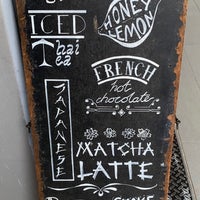 ICED
Thai
Tea
HONEY
LEMON
FRENCH
hot
chocolate
JAPANESE
MATCHA
LATTE